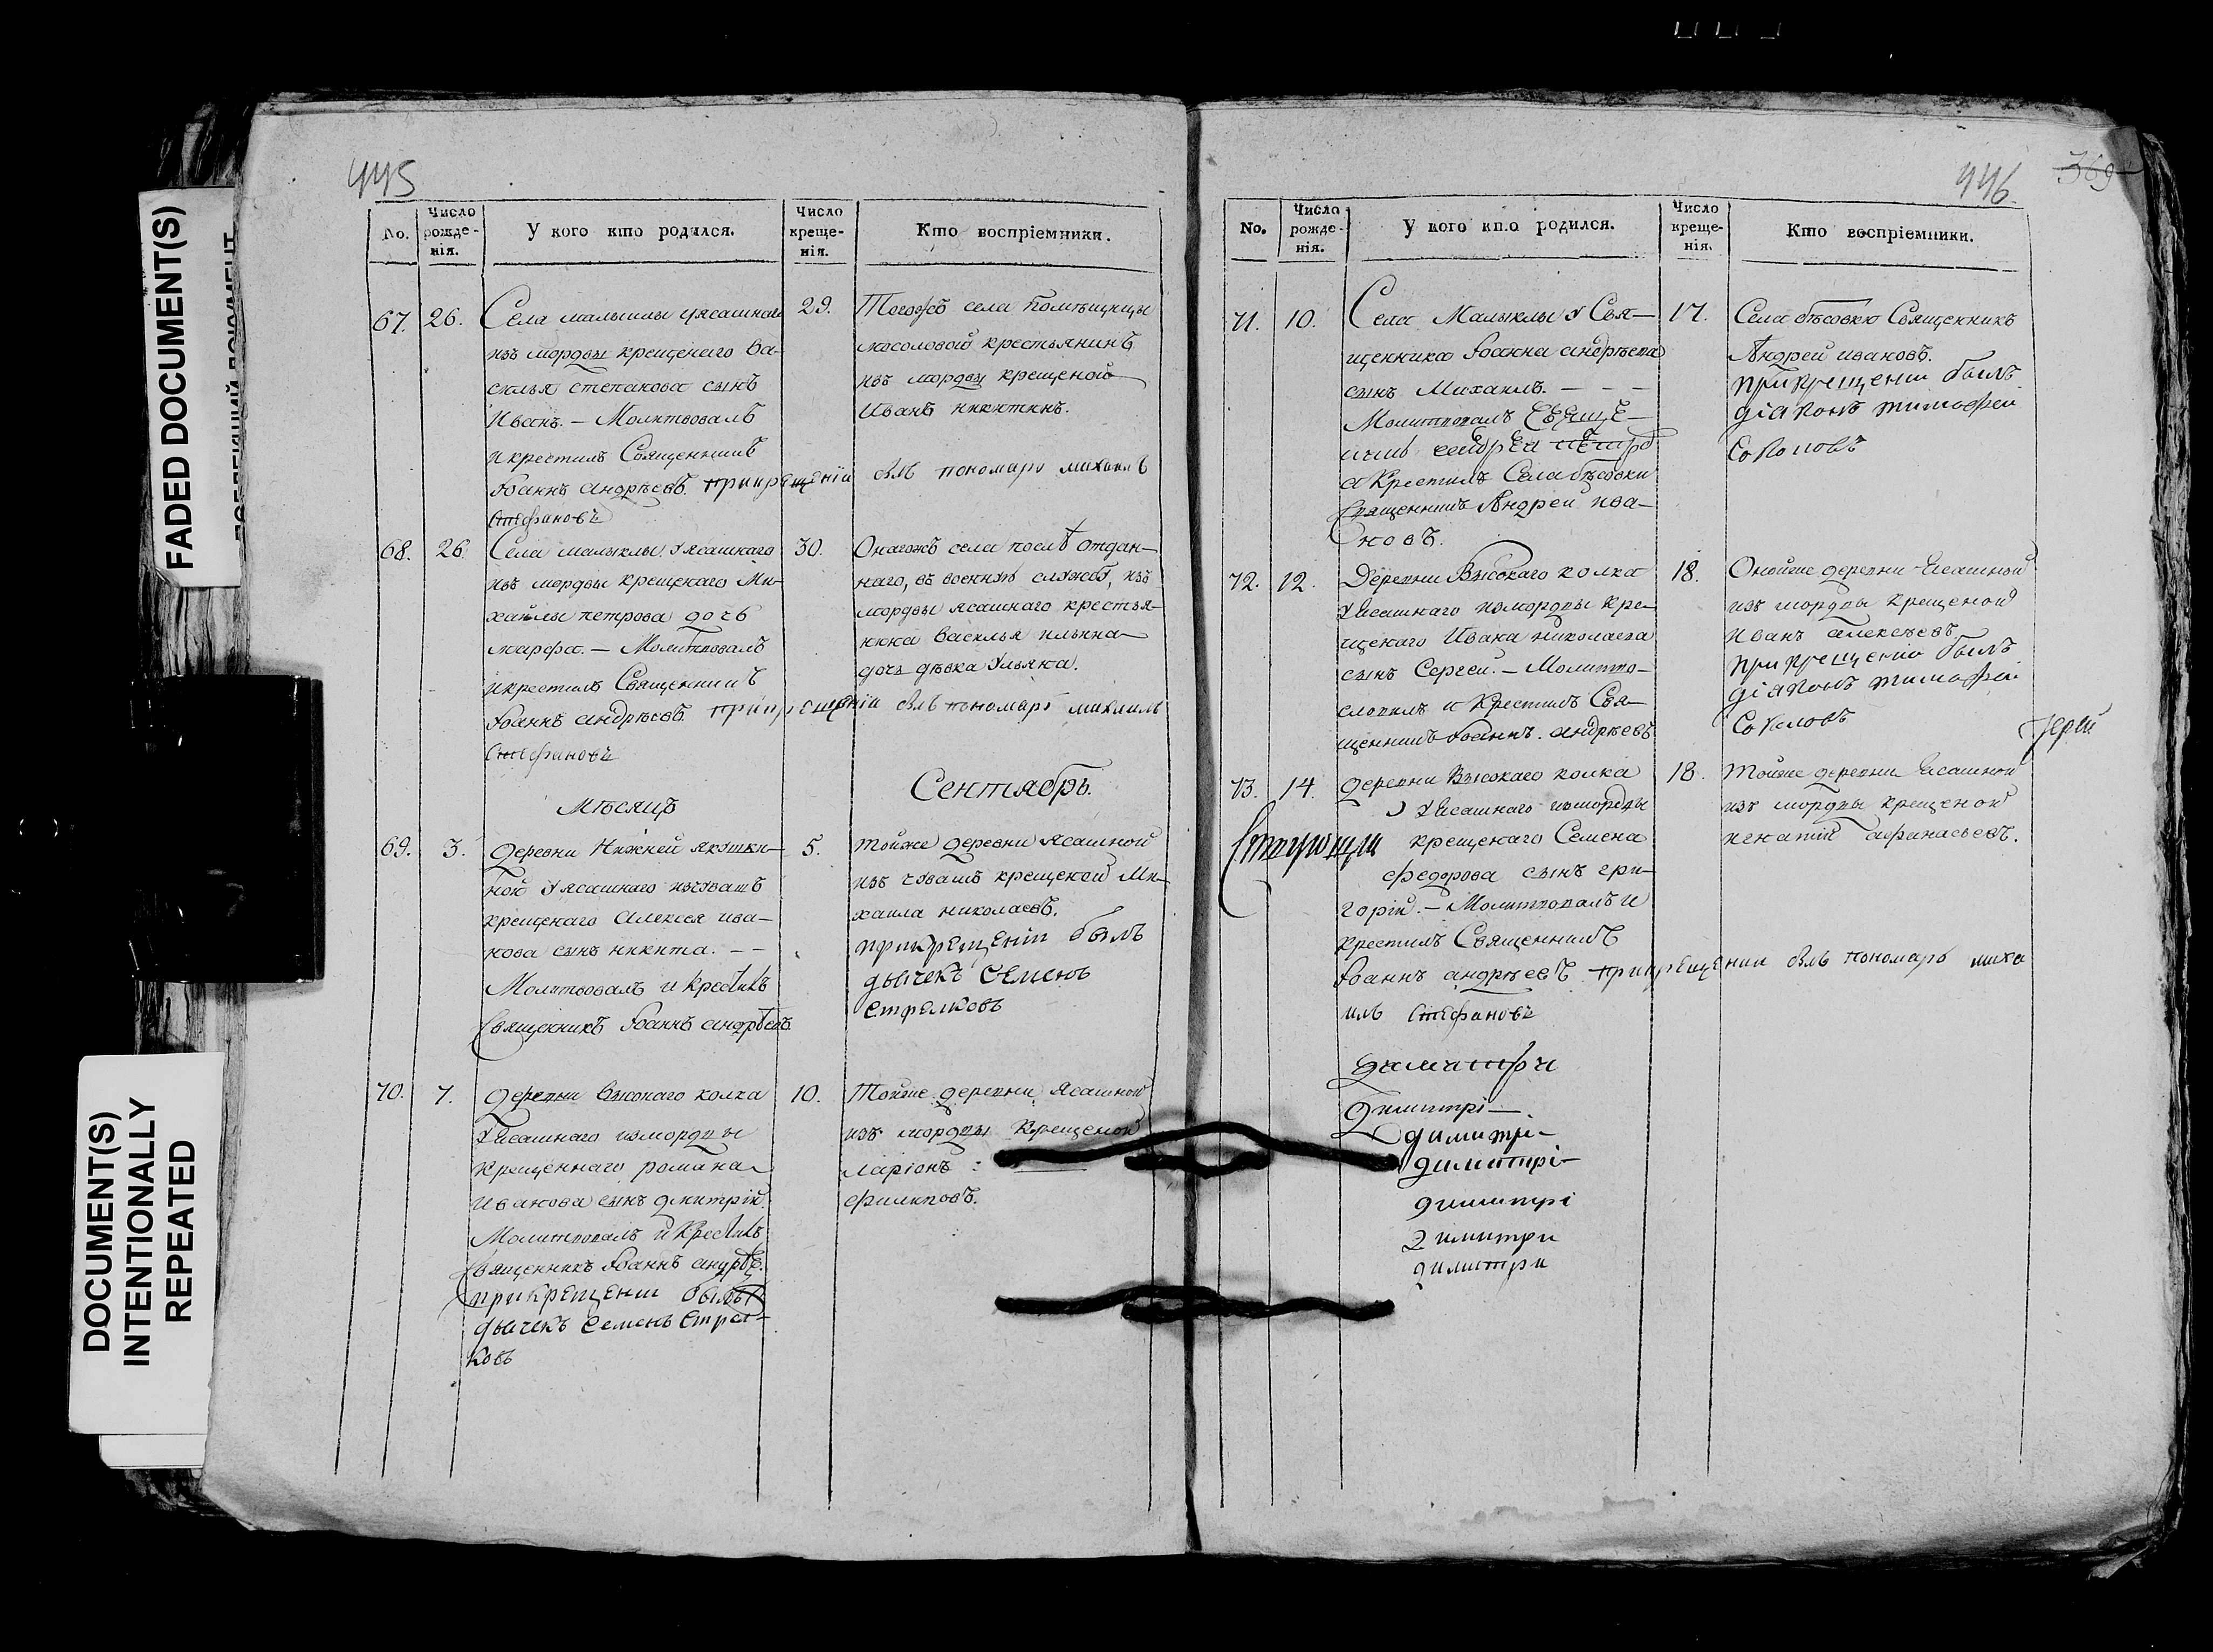 FADED DOCUMENT(S)
DOCUMENT(S)
INTENTIONALLY
REPEATED
445
No.
Число рожде-нія.
У кого кто родился.
Число креще-нія.
Кто воспріемники.
67. 26.
Села малыклы уясашнаго
изъ мордвы крещенаго Ва-
силья степанова сынъ
Иванъ. – Молитвовалъ
икрестилъ Священникъ
Іоаннъ андрѣевъ. прикрещеніи былъ пономарь михаилъ
Стефановъ
29.
Тогожъ села Помѣщицы
мосоловой крестьянинъ
изъ мордвы крещеной
Иванъ никитинъ.
68. 26
Села малыклы уясашнаго
изъ мордвы крещенаго Ми-
хайлы петрова дочь
марфа. – Молитвовалъ
икрестилъ Священникъ
Іоаннъ андрѣевъ. прикрещеніи былъ пономарь михаилъ
Стефановъ
30.
Онагожъ села послѣ отдан-
наго, въ военную службу, изъ
мордвы ясашнаго крестья-
нина Василья ильина
дочь дѣвка Ульяна.
Мѣсяцъ Сентябрь.
69. 3.
деревни Нижней якушки-
ной уясашнаго изчувашъ
крещенаго Алексея ива-
нова сынъ никита. – –
Молитвовалъ и крестилъ
Священникъ Іоаннъ андрѣевъ
5.
тойже деревни ясашной
изъ чувашъ крещеной Ми-
хаила николаевъ.
прикрещеніи былъ
дьячекъ Семенъ
Стрелковъ
70. 7.
деревни Высокаго колка
Уясашнаго измордвы
крещеннаго романа
Иванова сынъ дмитрій.
Молитвовалъ и Крестилъ
Священникъ Іоаннъ андрѣе.
прикрещении былъ
дьячекъ Семенъ Стрел-
ковъ
10.
Тойже деревни Ясашной
изъ мордвы Крещеной
ларіонъ
филиповъ.
446
369
No.
Число рожде-нія.
У кого кто родился.
Число креще-нія.
Кто воспріемники.
71. 10.
Села Малыклы у Свя-
щенника Іоанна андрѣева
сынъ Михаилъ. – – –
Молитвовалъ
а Крестилъ Села бѣсовки
Священникъ Андрей ива-
новъ.
17.
Села бѣсовки Священникъ
Андрей ивановъ.
прикрещении былъ
діаконъ тимофеи
Соколовъ
72. 12.
Деревни Высокаго колка
Уясашнаго измордвы кре-
щенаго Ивана николаева
сынъ Сергей. – Молитво-
словилъ и Крестилъ Свя-
щенникъ Іоаннъ. андрѣевъ
18.
Онойже деревни Ясашной
изъ мордвы крещеной
Иванъ алексѣевъ
при крещении былъ
діаконъ тимофеи
Соколовъ
Іерей
73. 14.
деревни Высокаго колка
Уясашнаго измордвы
крещенаго Семена
федорова сынъ гри-
горій. – Молитвовалъ и
крестилъ Священникъ
Іоаннъ андрѣевъ прикрещении былъ пономарь миха
илъ Стефановъ
18.
Тойже деревни Ясашной
изъ мордвы крещеной
игнатій афанасьевъ.
Димитрі –
димитри –
димитрі –
димитрі
димитри
димитри